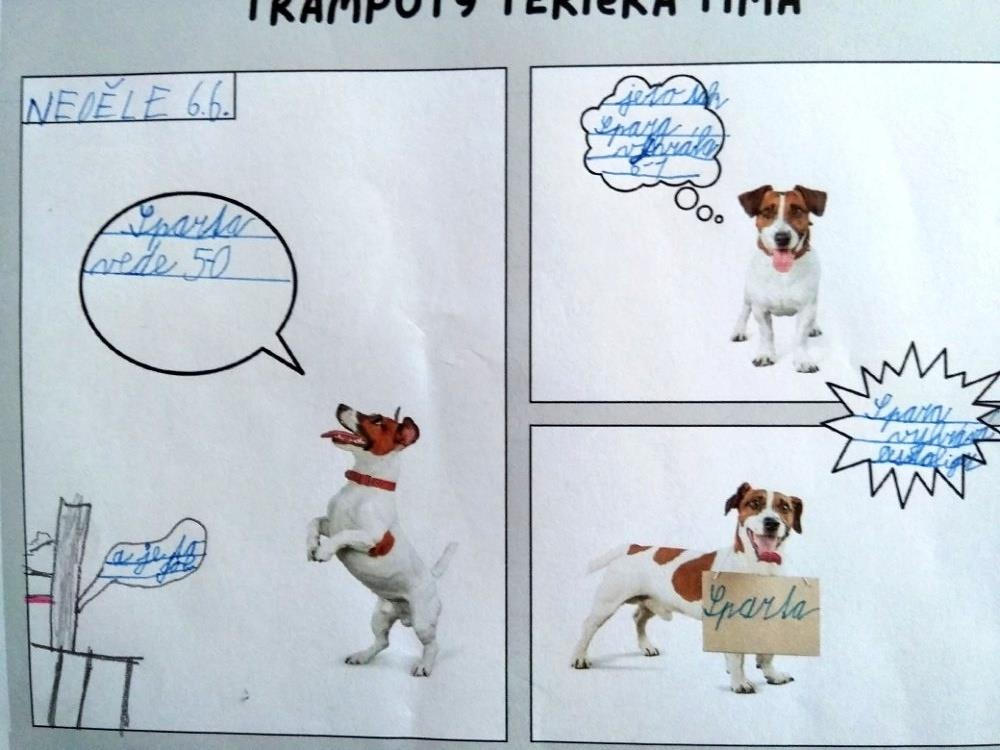 TRAMPOTY TERIÉRA TIMA
NEDĚLE 6.6.
Sparta
vede 50
a je to
je to
Spara
vyhrála
6-1
Spara
vyhrává
Sparta